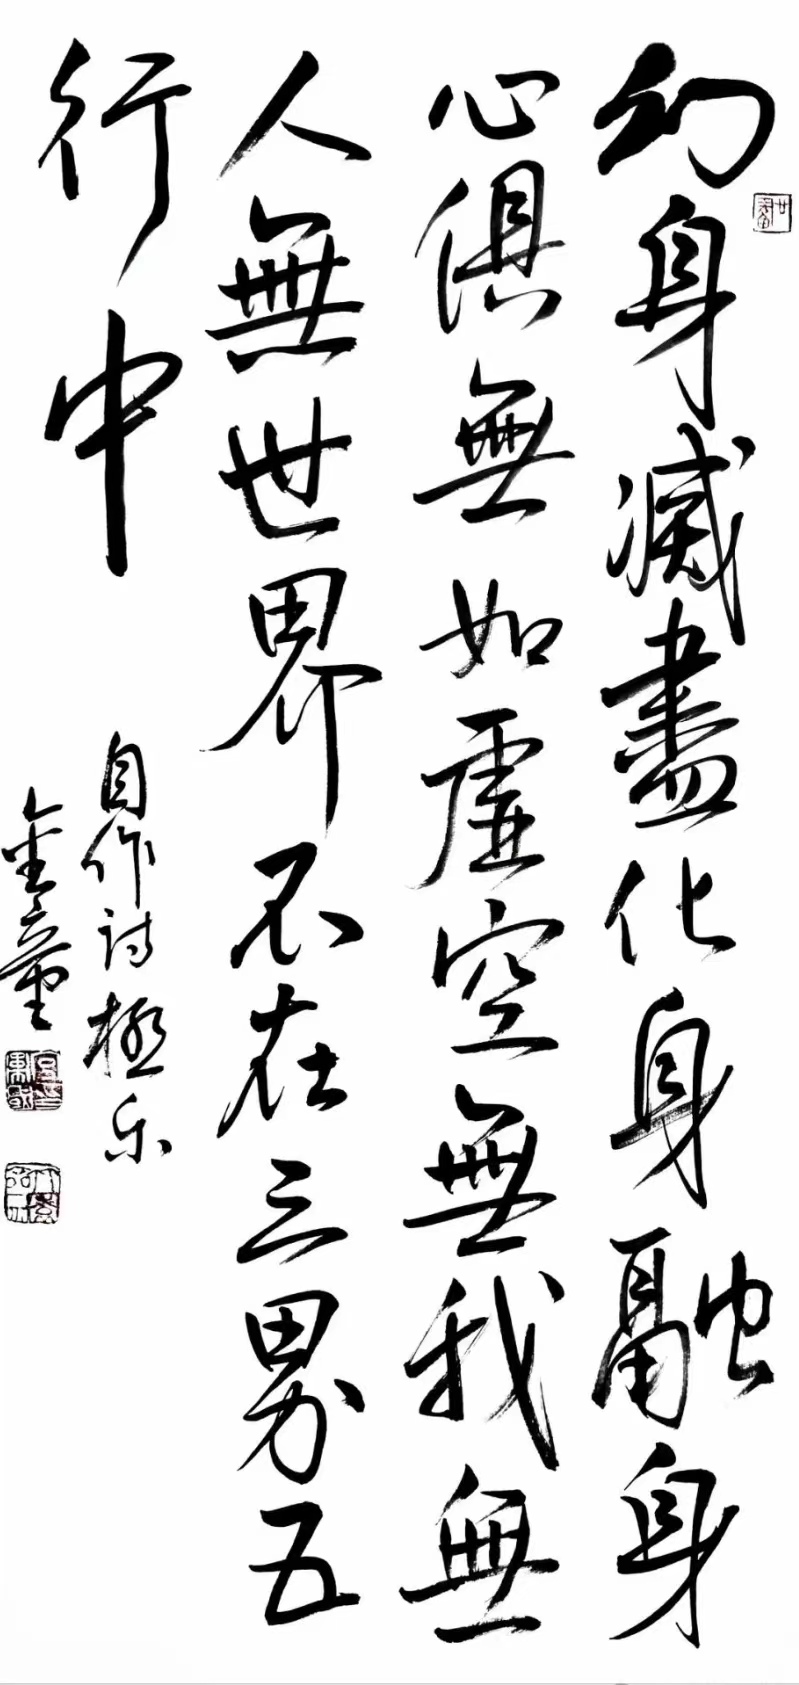 幻身滅盡化身融身
心俱無如虛空無我無
人無世界不在三界五
行中
自作诗極乐
金童